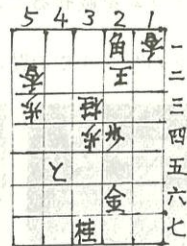 5 4 3 2 1
角 香 一
香 王 二
歩 桂 三
歩 歩 四
と 五
金 六
桂 七